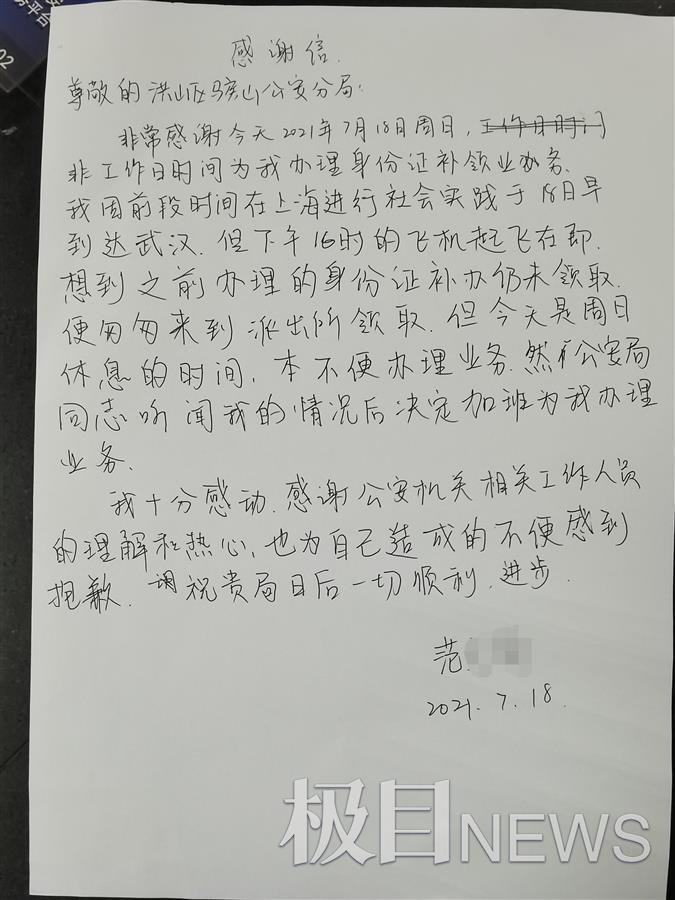 务平台
02
感谢信.
尊敬的洪山区马房山公安分局:
非常感谢今天2021年7月18日周日,工作日时间
非工作日时间为我办理身份证补领业务.
我因前段时间在上海进行社会实践于18日早
到达武汉.但下午16时的飞机起飞在即.
想到之前办理的身份证补办仍未领取.
便匆匆来到派出所领取.但今天是周日
休息的时间,本不便办理业务.然而公安局
同志听闻我的情况后决定加班为我办理
业务.
我十分感动.感谢公安机关相关工作人员
的理解和热心,也为自己造成的不便感到
抱歉.谨祝贵局日后一切顺利,进步.
范
2021.7.18.
极目NEWS